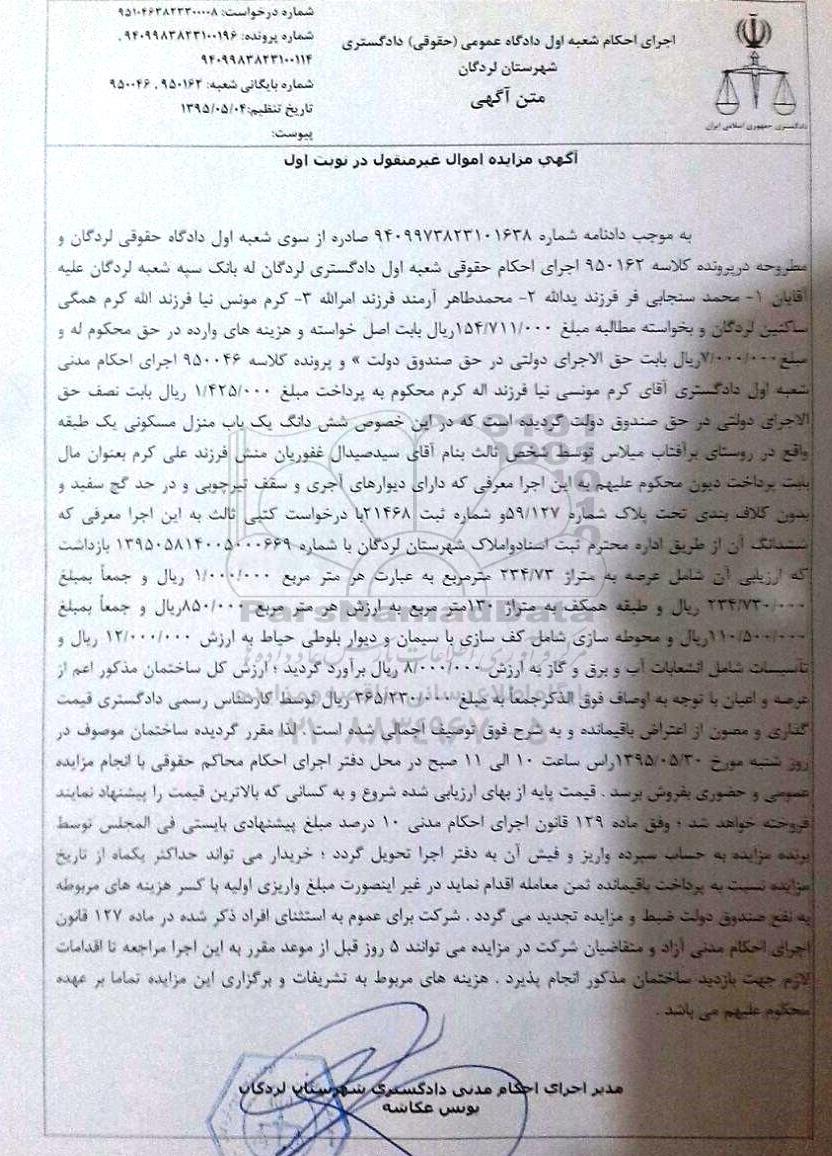 اجرای احکام شعبه اول دادگاه عمومی (حقوقی) دادگستری
شهرستان لردگان
متن آگهی
دادگستری جمهوری اسلامی ایران
شماره درخواست: ۹۵۱۰۴۶۳۸۲۳۳۰۰۰۰۸
شماره پرونده: ۹۴۰۹۹۸۳۸۲۳۱۰۰۱۹۶ ,
۹۴۰۹۹۸۳۸۲۳۱۰۰۱۱۴
شماره بایگانی شعبه: ۹۵۰۱۶۲ , ۹۵۰۰۴۶
تاریخ تنظیم:۱۳۹۵/۰۵/۰۴
پیوست:
آگهي مزایده اموال غیرمنقول در نوبت اول
به موجب دادنامه شماره ۹۴۰۹۹۷۳۸۲۳۱۰۱۶۳۸ صادره از سوی شعبه اول دادگاه حقوقی لردگان و
مطروحه درپرونده کلاسه ۹۵۰۱۶۲ اجرای احکام حقوقی شعبه اول دادگستری لردگان له بانک سپه شعبه لردگان علیه
آقایان ۱- محمد سنجابی فر فرزند یدالله ۲- محمدطاهر آرمند فرزند امرالله ۳- کرم مونس نیا فرزند الله کرم همگی
ساکنین لردگان و بخواسته مطالبه مبلغ ۱۵۴/۷۱۱/۰۰۰ریال بابت اصل خواسته و هزینه های وارده در حق محکوم له و
مبلغ۷/۰۰۰/۰۰۰ریال بابت حق الاجرای دولتی در حق صندوق دولت » و پرونده کلاسه ۹۵۰۰۴۶ اجرای احکام مدنی
شعبه اول دادگستری آقای کرم مونسی نیا فرزند اله کرم محکوم به پرداخت مبلغ ۱/۴۲۵/۰۰۰ ریال بابت نصف حق
الاجرای دولتی در حق صندوق دولت گردیده است که در این خصوص شش دانگ یک باب منزل مسکونی یک طبقه
واقع در روستای برآفتاب میلاس توسط شخص ثالث بنام آقای سیدصیدال غفوریان منش فرزند علی کرم بعنوان مال
بابت پرداخت دیون محکوم علیهم به این اجرا معرفی که دارای دیوارهای آجری و سقف تیرچوبی و در حد گچ سفید و
بدون کلاف بندی تحت پلاک شماره ۵۹/۱۲۷و شماره ثبت ۲۱۴۶۸با درخواست کتبی ثالث به این اجرا معرفی که
ششدانگ آن از طریق اداره محترم ثبت اسنادواملاک شهرستان لردگان با شماره ۱۳۹۵۰۵۸۱۴۰۰۵۰۰۰۶۶۹ بازداشت
که ارزیابی آن شامل عرصه به متراژ ۲۳۴/۷۳ مترمربع به عبارت هر متر مربع ۱/۰۰۰/۰۰۰ ریال و جمعاً بمبلغ
۲۳۴/۷۳۰/۰۰۰ ریال و طبقه همکف به متراژ ۱۳۰متر مربع به ارزش هر متر مربع ۸۵۰/۰۰۰ریال و جمعاً بمبلغ
۱۱۰/۵۰۰/۰۰۰ریال و محوطه سازی شامل کف سازی با سیمان و دیوار بلوطی حیاط به ارزش ۱۲/۰۰۰/۰۰۰ ریال و
تأسیسات شامل انشعابات آب و برق و گاز به ارزش ۸/۰۰۰/۰۰۰ ریال برآورد گردید ؛ ارزش کل ساختمان مذکور اعم از
عرصه و اعیان با توجه به اوصاف فوق الذکرجمعاً به مبلغ ۳۶۵/۲۳۰/۰۰۰ ریال توسط کارشناس رسمی دادگستری قیمت
گذاری و مصون از اعتراض باقیمانده و به شرح فوق توصیف اجمالی شده است . لذا مقرر گردیده ساختمان موصوف در
روز شنبه مورخ ۱۳۹۵/۰۵/۳۰راس ساعت ۱۰ الی ۱۱ صبح در محل دفتر اجرای احکام محاکم حقوقی با انجام مزایده
عمومی و حضوری بفروش برسد . قیمت پایه از بهای ارزیابی شده شروع و به کسانی که بالاترین قیمت را پیشنهاد نمایند
فروخته خواهد شد ؛ وفق ماده ۱۲۹ قانون اجرای احکام مدنی ۱۰ درصد مبلغ پیشنهادی بایستی فی المجلس توسط
برنده مزایده به حساب سپرده واریز و فیش آن به دفتر اجرا تحویل گردد ؛ خریدار می تواند حداکثر یکماه از تاریخ
مزایده نسبت به پرداخت باقیمانده ثمن معامله اقدام نماید در غیر اینصورت مبلغ واریزی اولیه با کسر هزینه های مربوطه
به نفع صندوق دولت ضبط و مزایده تجدید می گردد . شرکت برای عموم به استثنای افراد ذکر شده در ماده ۱۲۷ قانون
اجرای احکام مدنی آزاد و متقاضیان شرکت در مزایده می توانند ۵ روز قبل از موعد مقرر به این اجرا مراجعه تا اقدامات
لازم جهت بازدید ساختمان مذکور انجام پذیرد . هزینه های مربوط به تشریفات و برگزاری این مزایده تماما بر عهده
محکوم علیهم می باشد .
مدیر اجرای احکام مدنی دادگستری شهرستان لردگان
یونس عکاشه
ParsNamadData